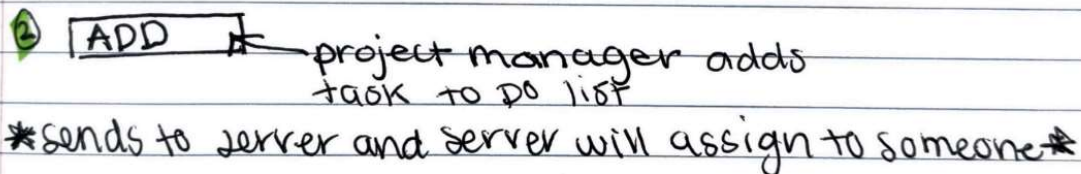 ② ADD project manager adds
task to DO list
*sends to server and server will assign to someone*